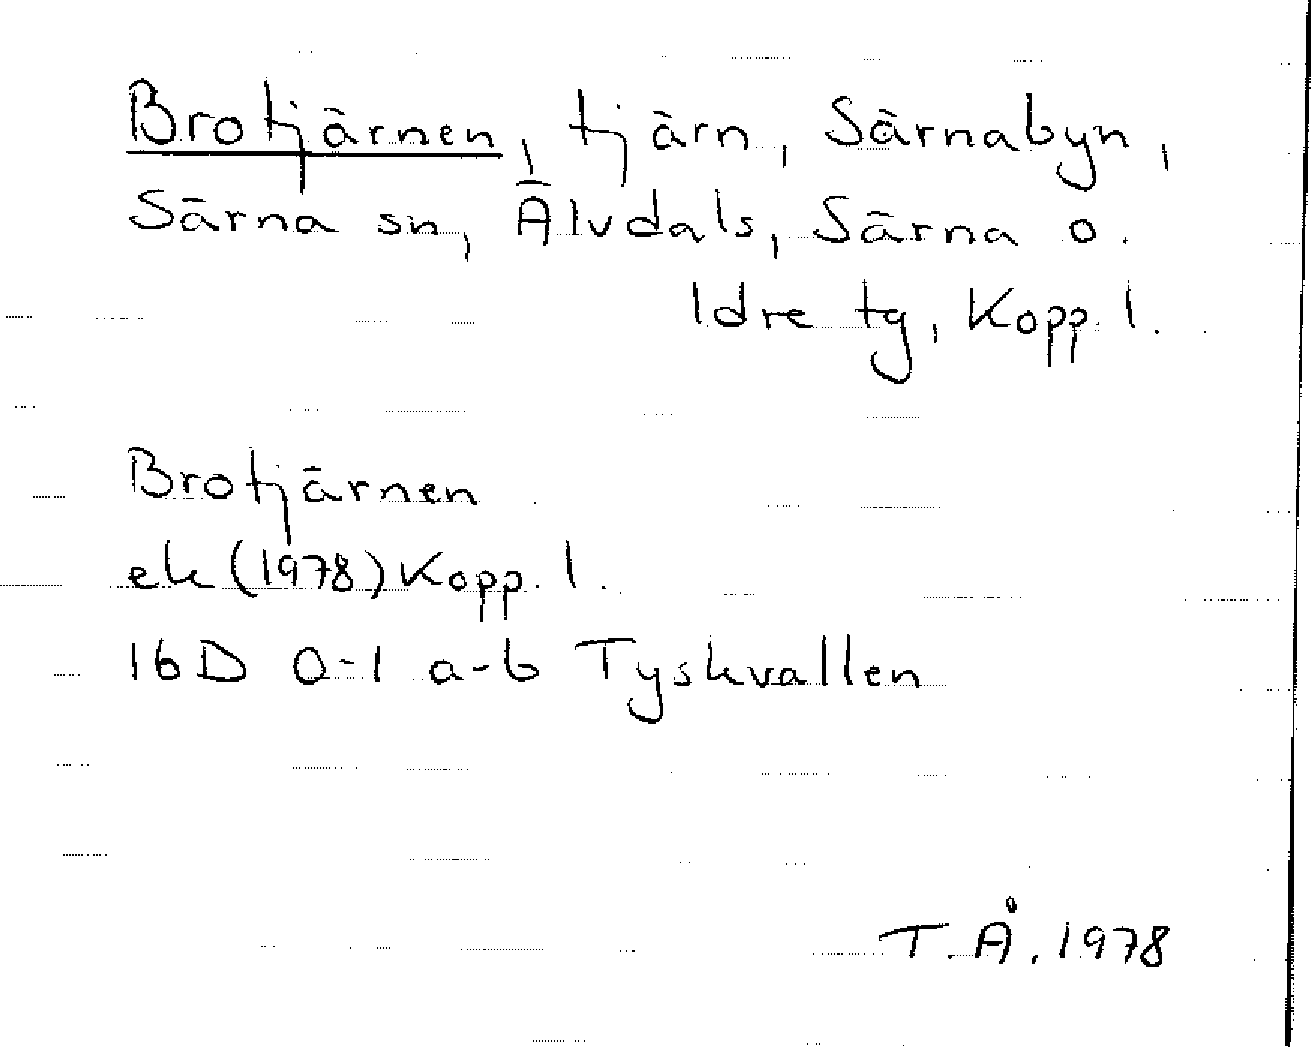 Brotjärnen, tjärn, Särnabyn,
Särna sn, Älvdals, Särna o.
Idre tg, Kopp. l.
Brotjärnen
ek (1978) Kopp. l.
16D 0-1 a-b Tyskvallen
T.Å. 1978